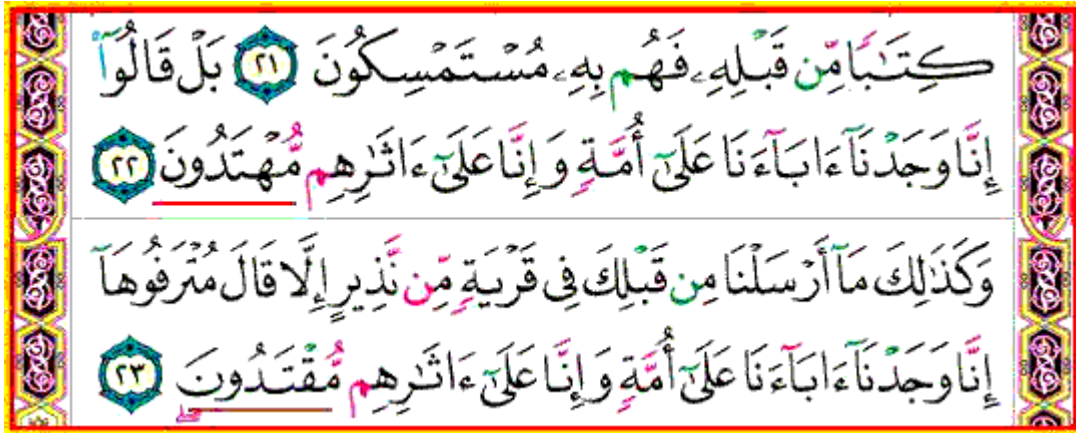 كِتَـٰبًا مِّن قَبْلِهِۦ فَهُم بِهِۦ مُسْتَمْسِكُونَ ٢١ بَلْ قَالُوٓا۟
إِنَّا وَجَدْنَآ ءَابَآءَنَا عَلَىٰٓ أُمَّةٍ وَإِنَّا عَلَىٰٓ ءَاثَـٰرِهِم مُّهْتَدُونَ ٢٢
وَكَذَٰلِكَ مَآ أَرْسَلْنَا مِن قَبْلِكَ فِى قَرْيَةٍ مِّن نَّذِيرٍ إِلَّا قَالَ مُتْرَفُوهَآ
إِنَّا وَجَدْنَآ ءَابَآءَنَا عَلَىٰٓ أُمَّةٍ وَإِنَّا عَلَىٰٓ ءَاثَـٰرِهِم مُّقْتَدُونَ ٢٣